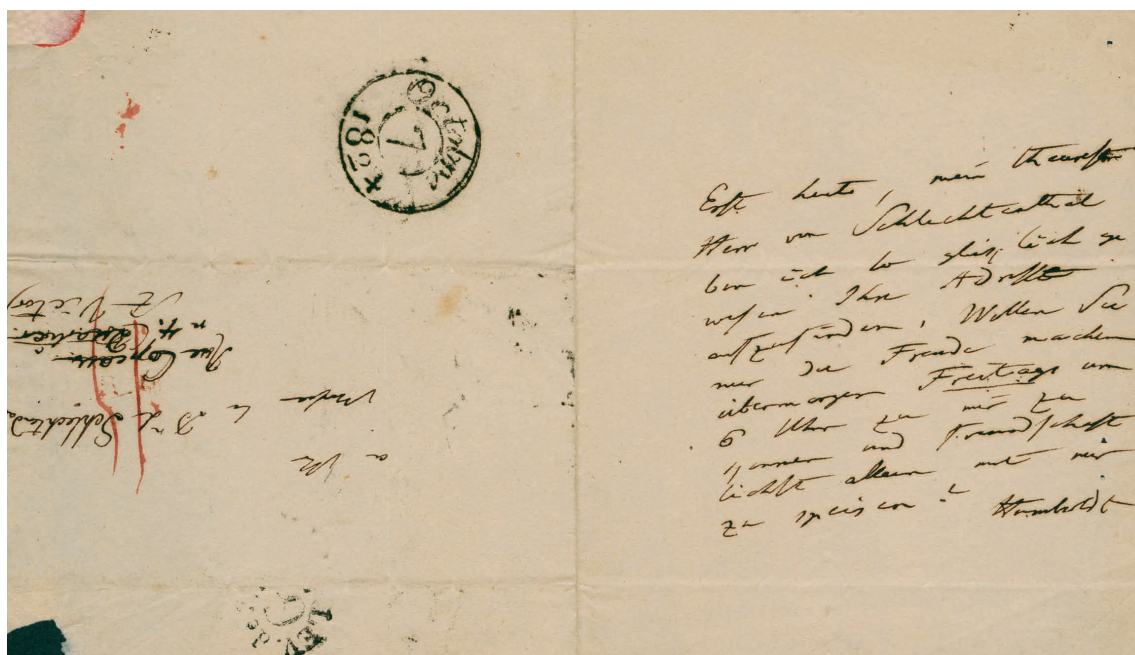 Octobre
7
1824
le Dr de Schlechtend
Rue Copeau
n 4.
St Victor
LEV. de
Erst heute, mein theurester
Herr von Schlechtenthal
bin ich so glük lich ge
wesen Ihre Adresse
aufzufinden, Wollen Sie
mir die Freude machen
übermorgen Freitags um
6 Uhr zu mir zu
kommen und freundschaft
lichst allein mit mir
zu speisen? Humboldt